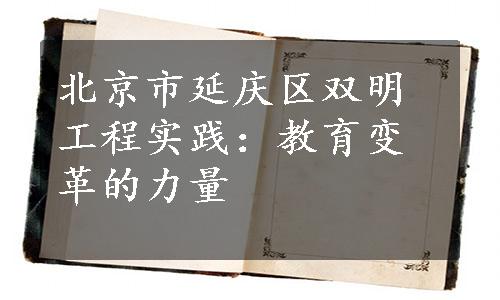 北京市延庆区双明
工程实践：教育变
革的力量